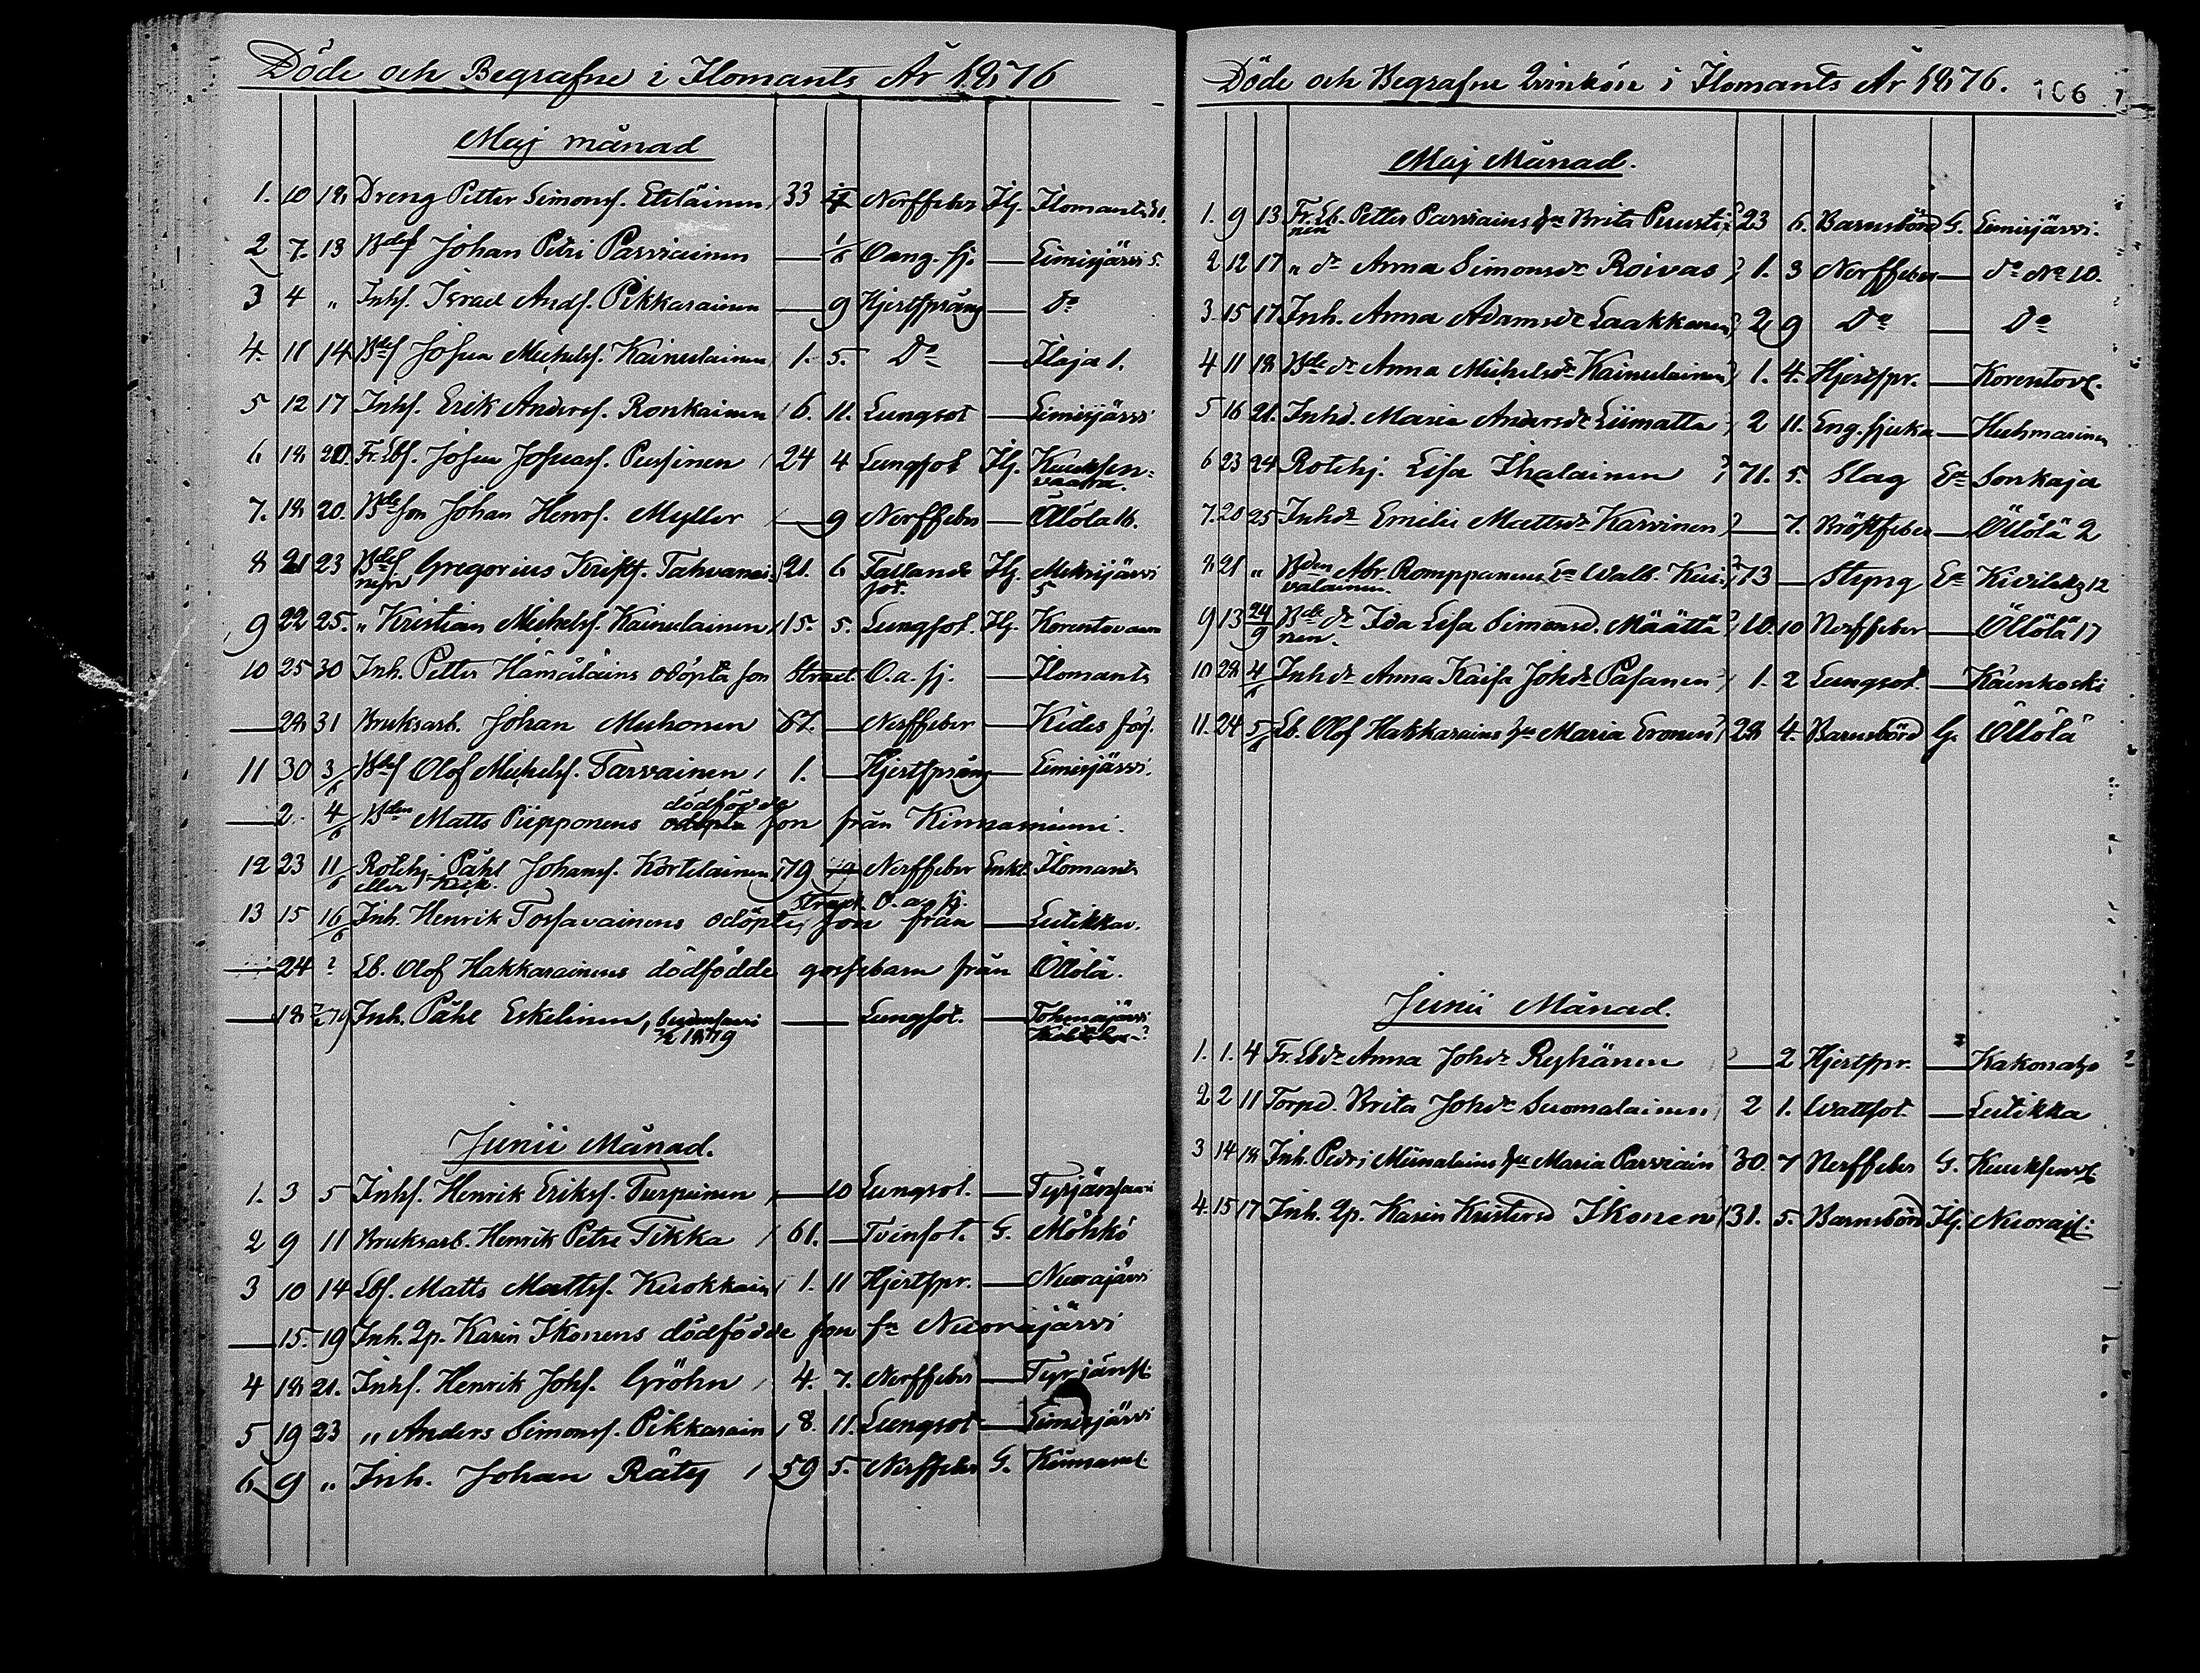 Döde och Begrafne i Ilomants År 1876
Maj månad
1. 10 18 Dreng Petter Simonss. Eteläinen 33 Nerffeber Ilj. Ilomants 31.
2 7. 13 Bdes Johan Petri Parviainen — Oang. sj. — Eimisjärvi 5.
3 4 " Inhs. Israel Andss. Pikkarainen — 9 Hjertsprång — Do
4. 11 14 Bdes Johan Michelss. Kainulainen 1. 5. Do — Ilaja 1.
5 12 17 Inhs. Erik Anderss. Ronkainen 6. 11. Lungsot — Eimisjärvi
6 18 20. Fr. Lbs. Johan Pussinen 24 4 Lungsot Ilj. Kuuksen-
vaara.
7. 18 20. Bde son Johan Henrs. Myller — 9 Nerffeber — Öllölä 16.
8 21 23 Bdes Gregorius Krists. Tahvanai- 21. 6 Fallande Ilj. Mekrijärvi
nen sot. 5
9 22 25. " Kristian Michelss. Kainulainen 15. 5. Lungsot. Ilj. Korentovaara
10 25 30 Inh. Petter Hämäläins odöpta son Straxt O.a. sj. — Ilomants
— 28 31 Bruksarb. Johan Muhonen 67. — Nerffeber — Kides förs.
11 30 3/6 Bdes Olof Michelss. Tarvainen 1. — Hjertsprång — Eimisjärvi.
dödfödde
— 2. 4/6 Bden Matts Piipponens odöpta son från Kinnasniemi.
12 23 11/6 Rotehj. Påhl Johanss. Kortelainen 79 Nerffeber Enkl. Ilomants
eller
Straxt. O.a. sj.
13 15 16/6 Inh. Henrik Torsavainens odöpte son från — Lutikkav.
— 24 ? Lb. Olof Hakkarainens dödfödde gossebarn från Öllölä.
— 18 Inh. Påhl Eskelinen, — Lungsot. — Tohmajärvi
1879
Junii Månad.
1. 3 5 Inhs. Henrik Erikss. Turpeinen — 10 Lungsot. — Tyrjänsaari
2 9 11 Bruksarb. Henrik Petri Tikka 61. — Tvinsot. G. Möhkö
3 10 14 Lbs. Matts Mattss. Kuokkain 1. 11 Hjertspr. — Nuorajärvi
— 15. 19 Inh. Qp. Karin Ikonens dödfödde son fn Nuorajärvi
4 18 21. Inhs. Henrik Johs. Gröhn 4. 7. Nerffeber — Tyrjäns.
5 19 23 " Anders Simonss. Pikkarain 8. 11. Lungsot — Eimisjärvi
6 9 " Inh. Johan Räty 59 5. Nerffeber G. Kinnasn.
Döde och Begrafne Qvinkön i Ilomants År 1876. 106
Maj Månad.
1. 9 13 Fr. Lb. Petter Parviains hu Brita Puusti- 23 6. Barnsbörd G. Eimisjärvi.
nen
2 12 17 " dr Anna Simonsdr Roivas 1. 3 Nerffeber — Do No 10.
3. 15 17 Inh. Anna Adamsdr Laakkanen 2 9 Do — Do
4 11 18 Bde dr Anna Michelsdr Kainulainen 1. 4. Hjertspr. — Korentov.
5 16 21. Inhd. Maria Andersdr Liimatta 2 11. Eng. sjuka — Huhmarinen
6 23 24 Rotehj. Lisa Ihalainen 71. 5. Slag Ea Sonkaja
7. 20 25 Inhdr Emilie Mattsdr Karvinen — 7. Bröstfeber — Öllölä 2
8 21 " Bden Abr. Romppanens Ea Walb. Kui- 73 — Styng Ea Kivilaks 12
valainen.
9 13 24/9 Bde dr Ida Lisa Simonsd. Määttä 10. 10 Nerffeber — Öllölä 17
nen.
10 28 4/6 Inhdr Anna Kaisa Johdr Pasanen 1. 2 Lungsot. — Käenkoski
11. 24 5/6 Lb. Olof Hakkarains hu Maria Eronen 28 4. Barnsbörd G. Öllölä
Junii Månad.
1. 1. 4 Fr. Lbdr Anna Johdr Reyhänen — 2 Hjertspr. — Kakonaho
2 2 11 Torpd. Brita Johdr Suomalainen 2 1. Wattsot. — Lutikka
3 14 18 Inh. Pedri Miinalains hu Maria Parviain 30. 7 Nerffeber G. Kuuksenv.
4. 15 17 Inh. Qp. Karin Kristersd Ikonen 31. 5. Barnsbörd Ilj. Nuoraj.